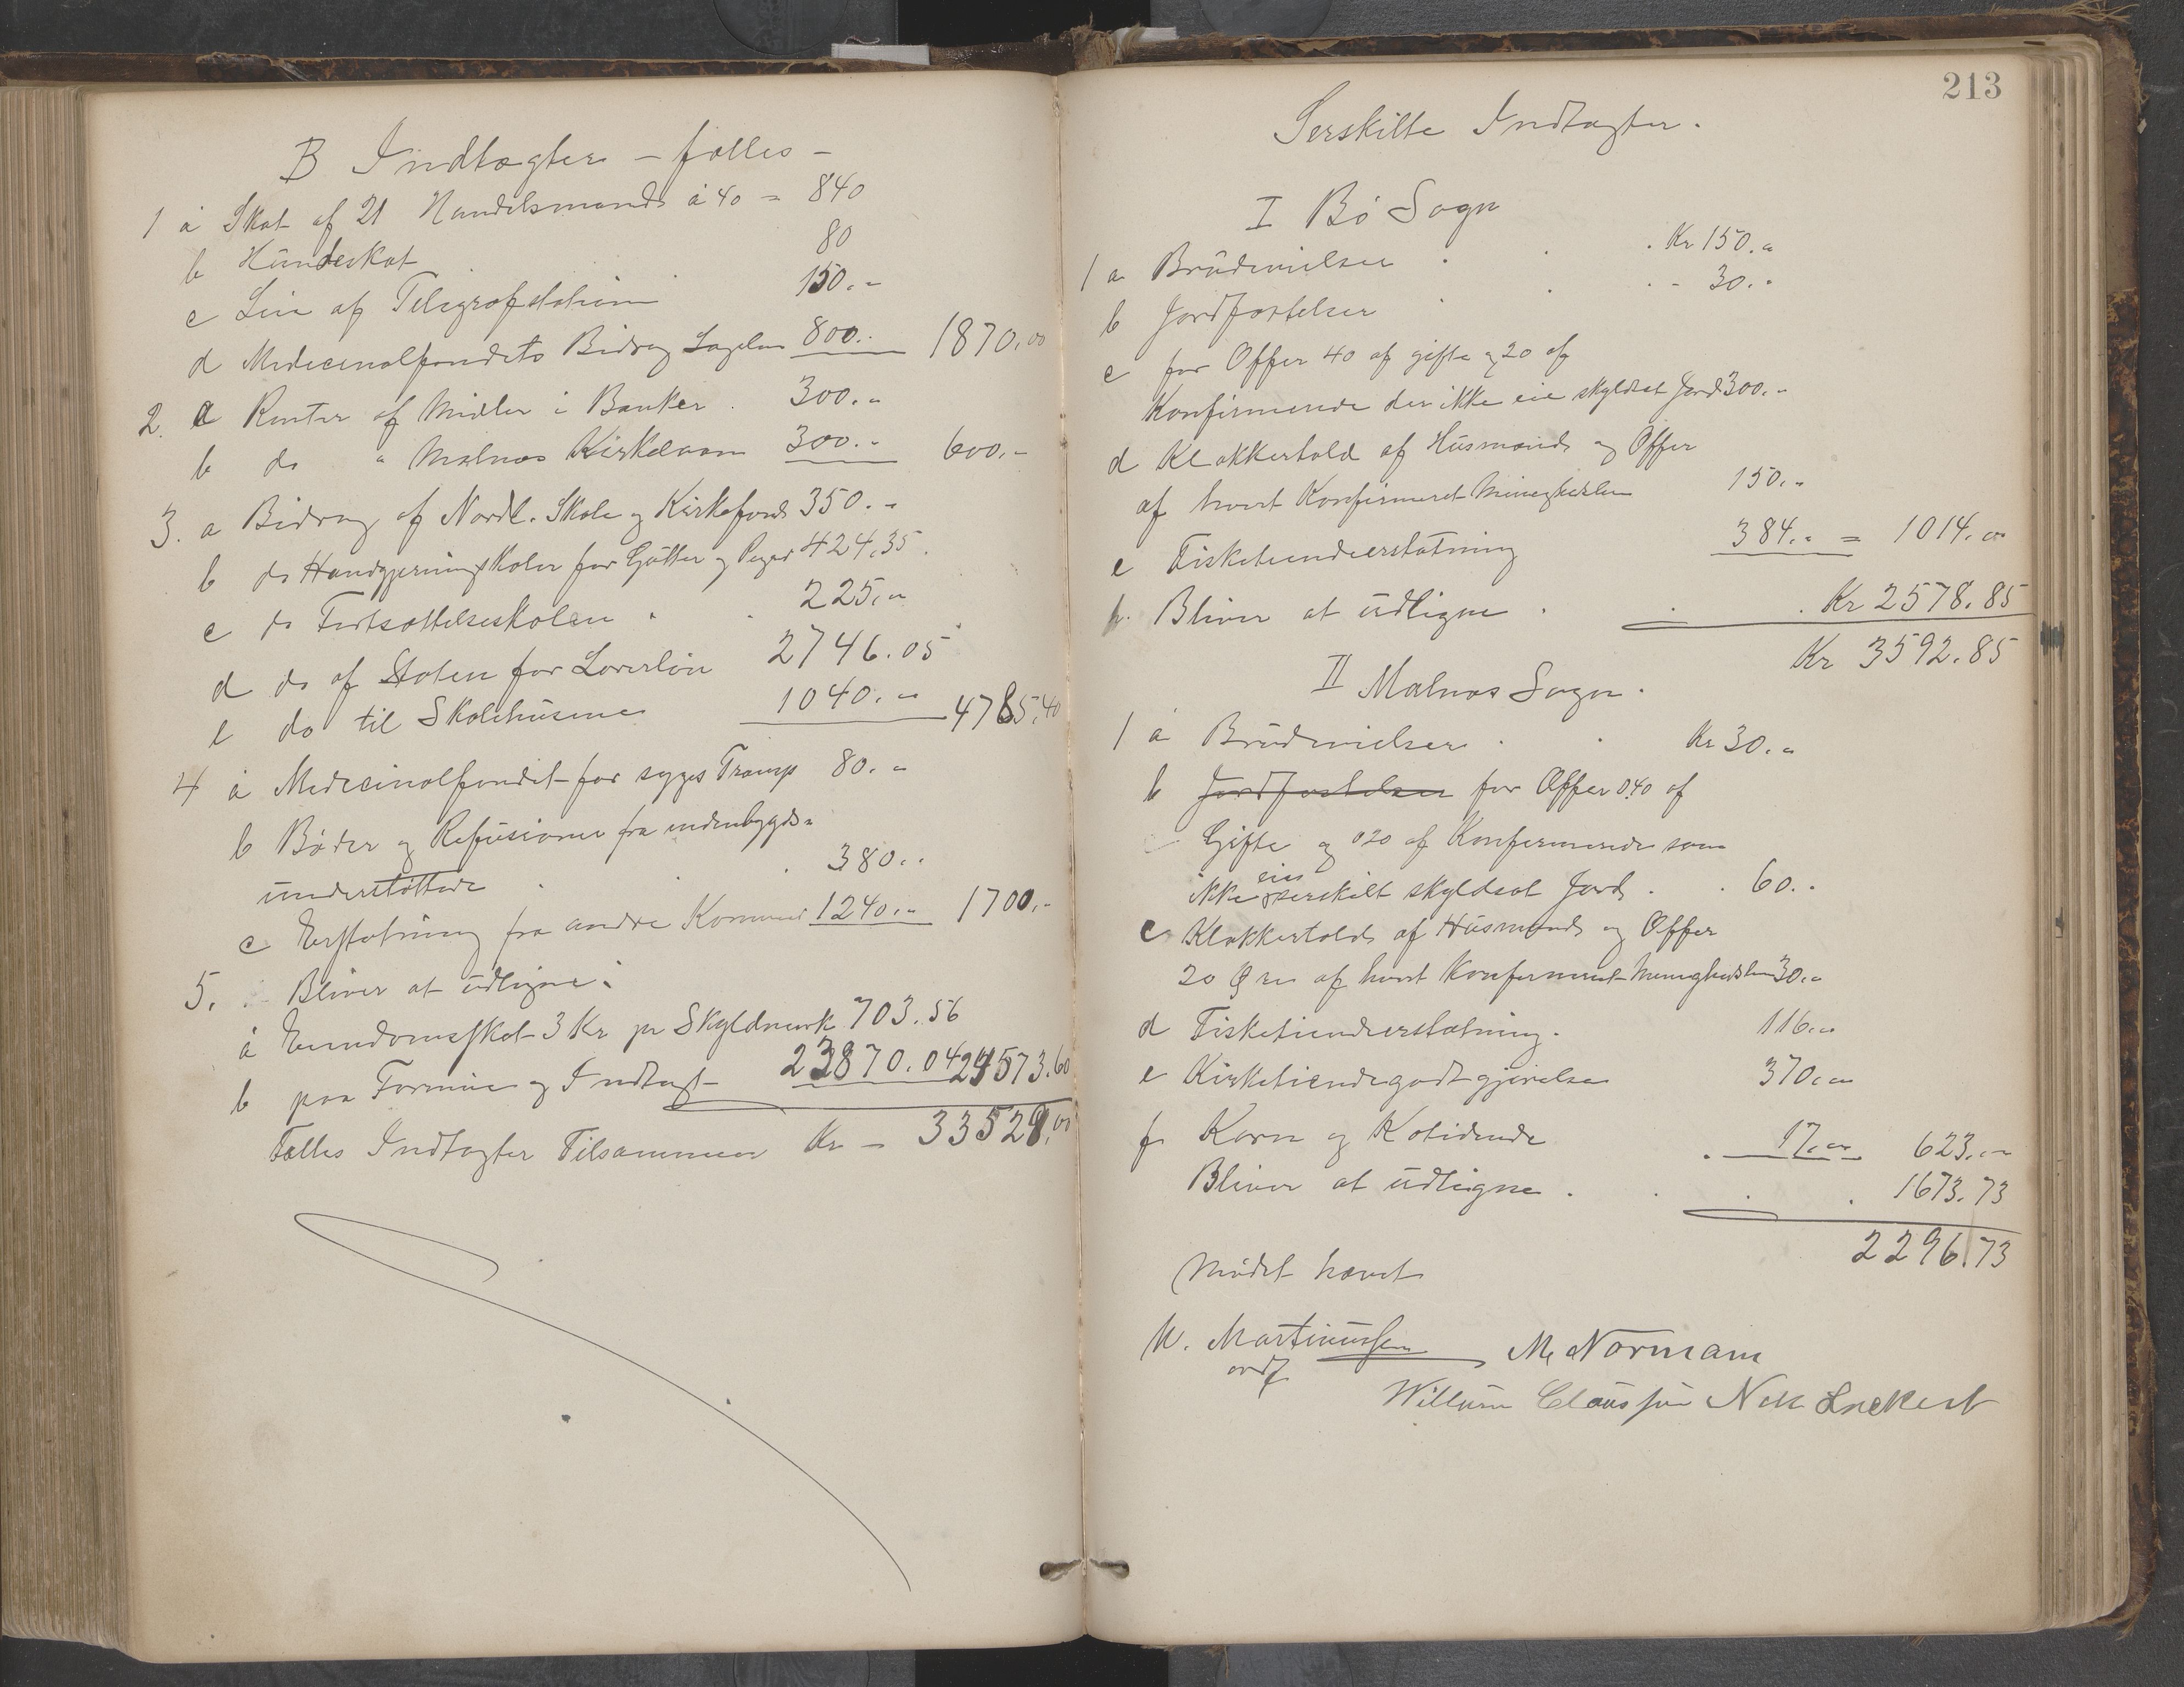 B Indtægter - fælles -
1 a Skat af 21 Handelsmænd à 40 = 840
b Hundeskat 80
c Leie af Telegrafstation 150.-
d Medicinalfondets Bidrag Lægeløn 800.. 1870,00
2. a Renter af Midler i Banker . 300.-
b do " Malnæs Kirkelaan 300.- 600.-
3. a Bidrag af Nordl. Skole og Kirkefond 350.-
b do Haandgjerningskoler for Gutter og Piger 424.35.
c do Fortsættelseskolen . . 225.-
d do af Staten for Lærerløn 2746.05
e do til Skolehusene 1040.- 4785,40
4 a Medicinalfondet for syges Transp 80.-
b Bøder og Refusioner fra indenbygds-
understøttede . . 380..
c Erstatning fra andre Kommuner 1240.- 1700.-
5. Bliver at udligne:
a Eiendomsskat 3 Kr pr Skyldmark 703.56
b paa Formue og Indtægt 23870.04 24573.60
Fælles Indtægter Tilsammen Kr - 33529,00
213
Særskilte Indtægter.
I Bø Sogn
1 a Brudevielser . . . Kr 150.-
b Jordfæstelser . . . - 30.-
c for Offer 40 af gifte og 20 af
Konfirmerede der ikke eie skyldsat Jord 300.-
d Klokkertold af Husmænd og Offer
af hvert Konfirmeret Menighedslem 150.-
e Fisketiendeerstatning 384.- = 1014.-
Bliver at udligne . . . Kr 2578.85
Kr 3592.85
II Malnæs Sogn.
1 a Brudevielser . . Kr 30.-
b Jordfæstelser for Offer 0.40 af
Gifte og 0.20 af Konfirmerede som
ikke eier særskilt skyldsat Jord . . 60.-
c Klokkertold af Husmænd og Offer
20 Øre af hvert Konfirmeret Menighedslem 30.-
d Fisketiendeerstatning. 116.-
e Kirketiendegodtgjørelse 370.-
f Korn og Kotiende . 17.- 623.-
Bliver at udligne . . . . 1673.73
2296.73
Mødet hævet
M. Martinussen M. Normann
ordf
Willum Claussen